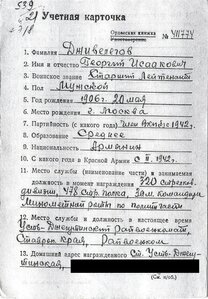 Учетная карточка
1. Фамилия Дживелегов
2. Имя и отчество Георгий Исаакович
3. Воинское звание Старший Лейтенант
4. Пол Мужской
5. Год рождения 1906г. 20 мая
6. Место рождения г. Москва
7. Партийность (с какого года) Член ВКП(б) с 1942г.
8. Образование Среднее
9. Национальность Армянин
10. С какого года в Красной Армии с II. 1942г.
11. Место службы (наименование части) и занимаемая
должность в момент награждения 320 стрелков.
дивизии, 478 стр. полка, Зам. Командира
Минометной роты по политчасти
12. Место службы и должность в настоящее время
Усть-Джегутинский Райвоенкомат,
Ставроп. край, Райвоенком
13. Домашний адрес награжденного Ст. Усть-Джегу-
тинская,
(См. н/об.)